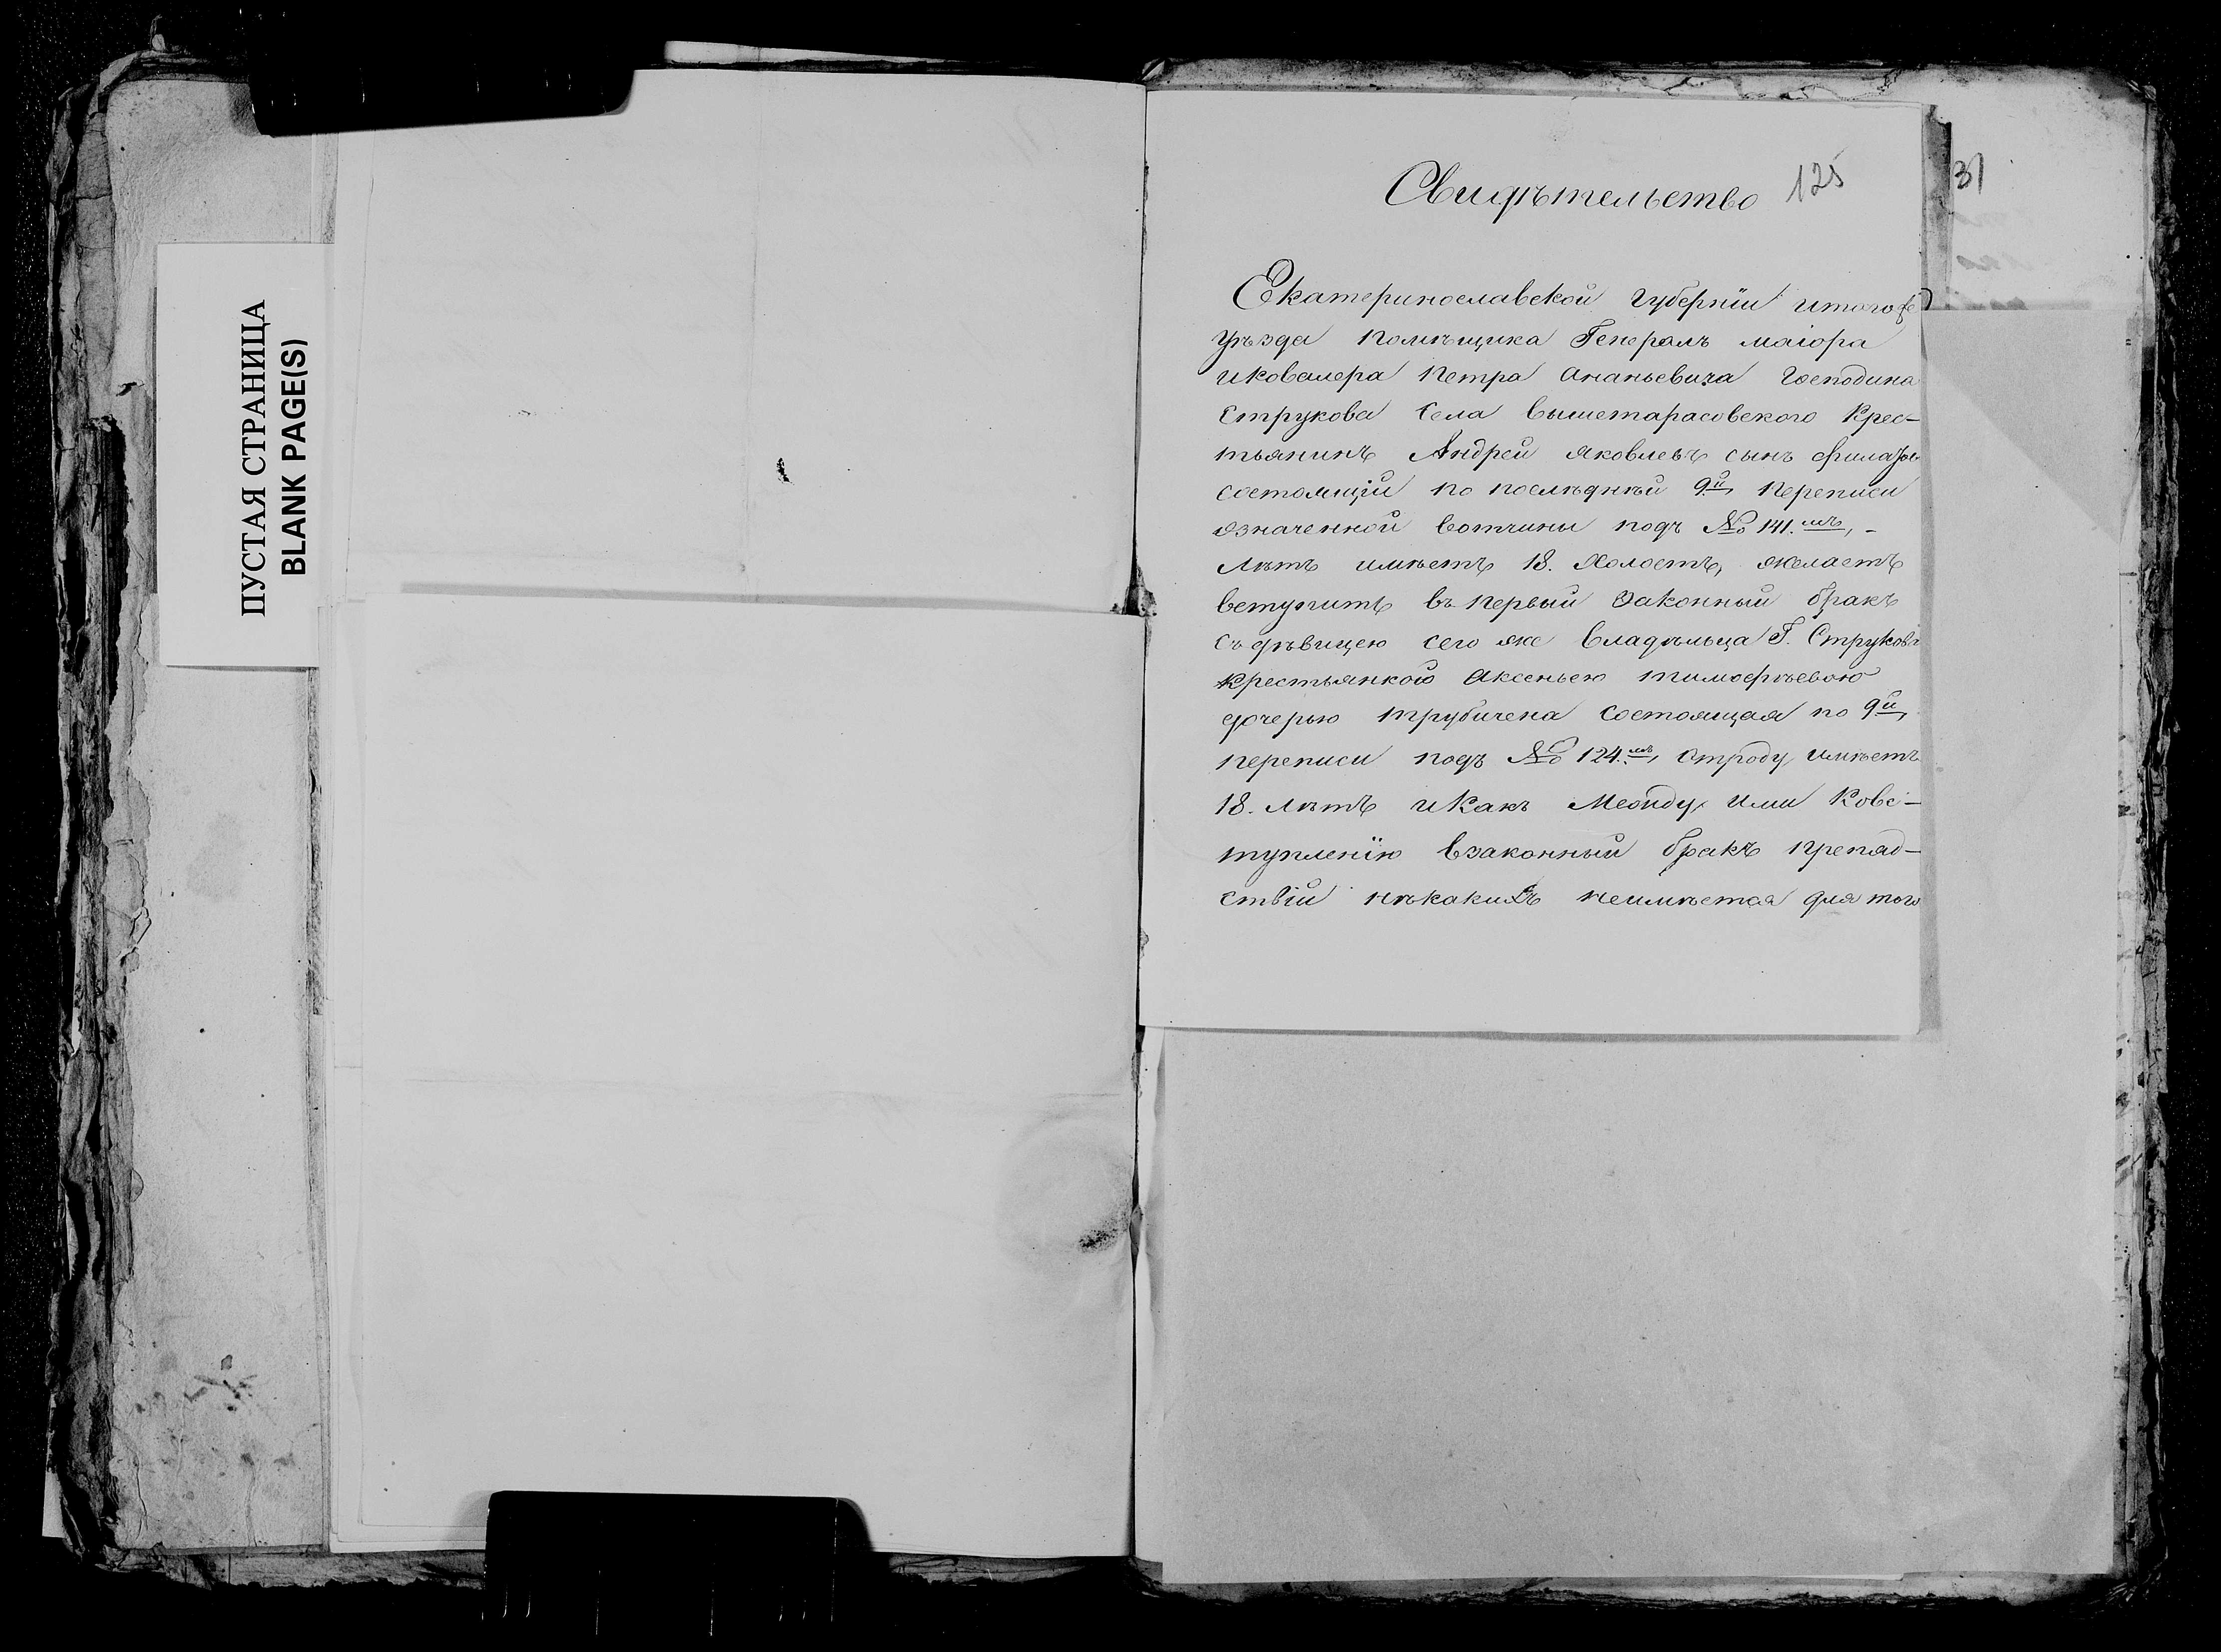 ПУСТАЯ СТРАНИЦА
BLANK PAGE(S)
Свидѣтельство 125
31
Екатеринославской губерніи итогоже
уѣзда помѣщика Генералъ маіора
иковалера Петра Ананьевича Господина
Струкова Села вышетарасовского Крес-
тьянинъ Андрей яковлевъ сынъ
состоящіи по послѣднѣй 9й переписи
означенной вотчины подъ № 141.мъ, -
лѣтъ имѣетъ 18. Холостъ, желаетъ
вступить въ первый Законный бракъ
съ дѣвицею сего же Владѣльца Г. Струкова
крестьянкою Аксеньею тимофѣевою
дочерью трубичена состоящая по 9й
переписи подъ № 124.мъ, отроду имѣетъ
18. лѣтъ икакъ Между ими ковс-
тупленїю взаконный бракъ препяд-
ствїи нѣкакихъ неимѣется для того